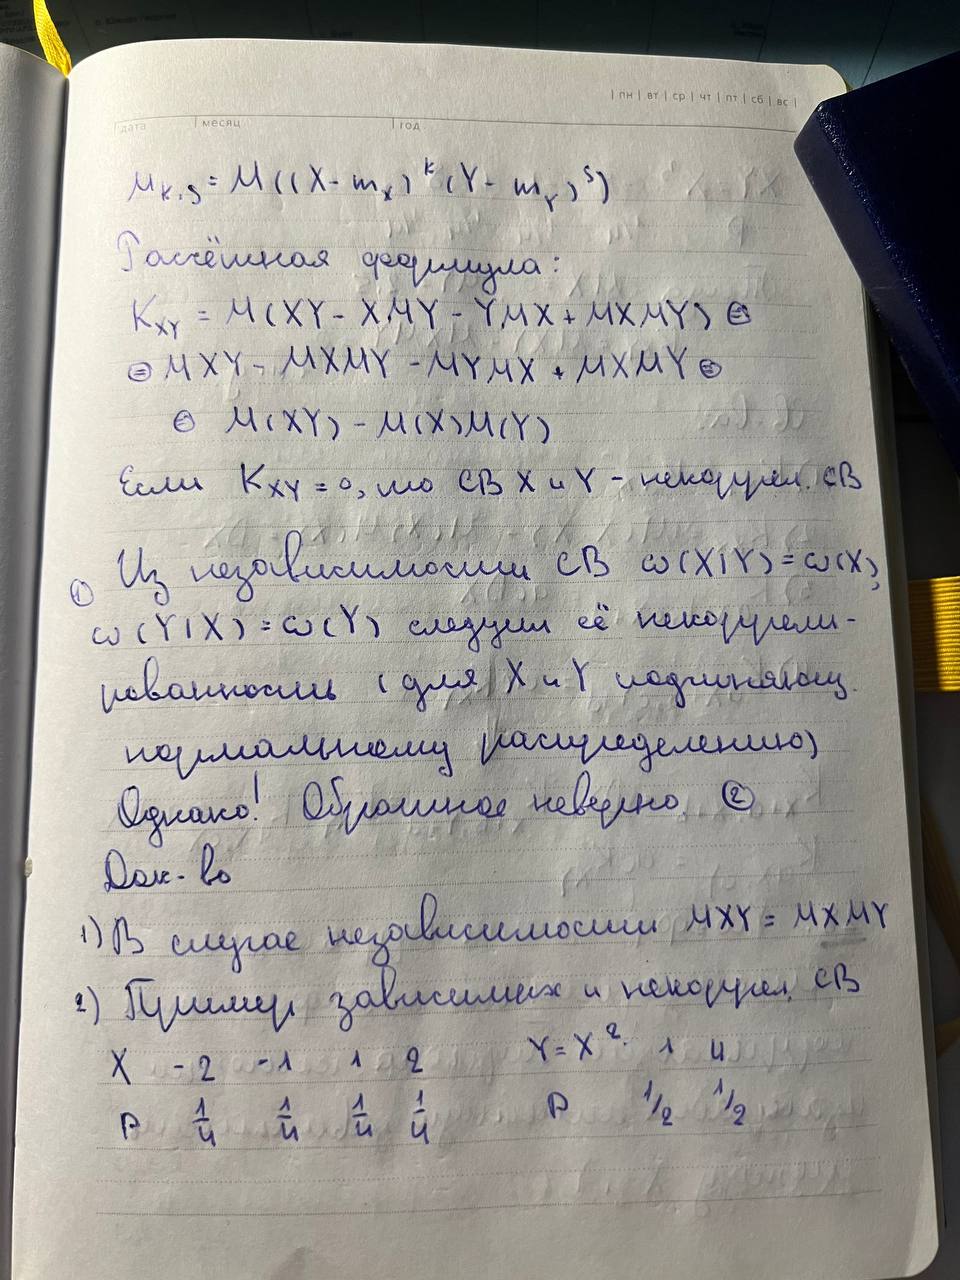 | пн | вт | ср | чт | пт | сб | вс |
дата | месяц | год
μ_{K,S} = M((X - m_x)^K (Y - m_Y)^S)
Расчётная формула:
K_{XY} = M(XY - XMY - YMX + MXMY) ⊜
⊜ MXY - MXMY - MYMX + MXMY ⊜
⊜ M(XY) - M(X)M(Y)
Если K_{XY} = 0, то СВ X и Y - некоррел. СВ
① Из независимости СВ ω(X|Y) = ω(X),
ω(Y|X) = ω(Y) следует её некоррели-
рованность (для X и Y подчиняющ.
нормальному распределению)
Однако! Обратное неверно. ②
Док-во
1) В случае независимости MXY = MXMY
2) Пример зависимых и некоррел. СВ
X -2 -1 1 2 Y = X² 1 4
P 1/4 1/4 1/4 1/4 P 1/2 1/2